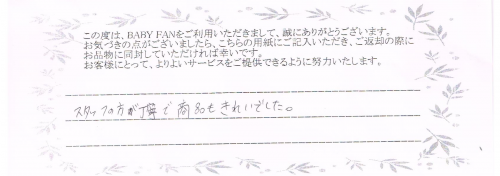 この度は、BABY FANをご利用いただきまして、誠にありがとうございます。
お気づきの点がございましたら、こちらの用紙にご記入いただき、ご返却の際に
お品物に同封していただければ幸いです。
お客様にとって、よりよいサービスをご提供できるように努力いたします。
スタッフの方が丁寧で商品もきれいでした。